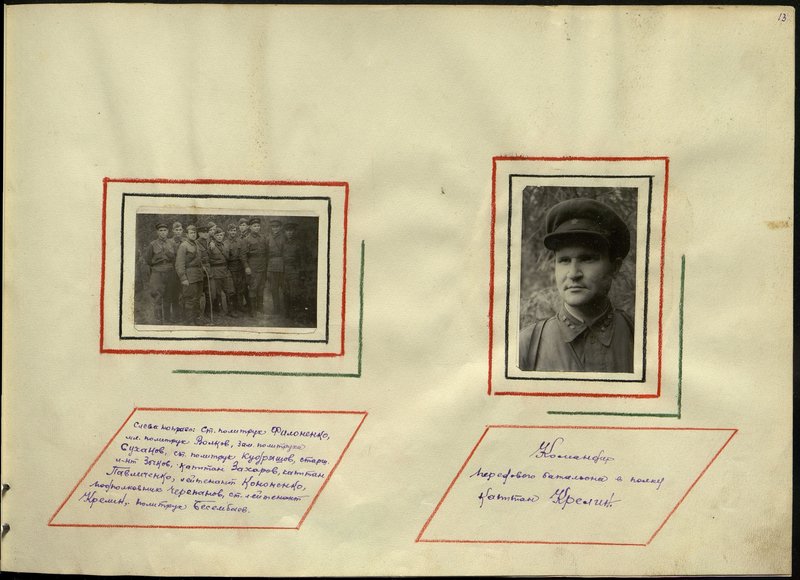 13
Слева направо: Ст. политрук Филоненко,
мл. политрук Волков, зам. политрука
Суханов, ст. политрук Кудряшов, старш.
л-нт Зыков, капитан Захаров, капитан
Павличенко, лейтенант Кононенко,
подполковник Черепанов, ст. лейтенант
Кремин, политрук Бесембаев.
Командир
батальона в полку
капитан Кремин.